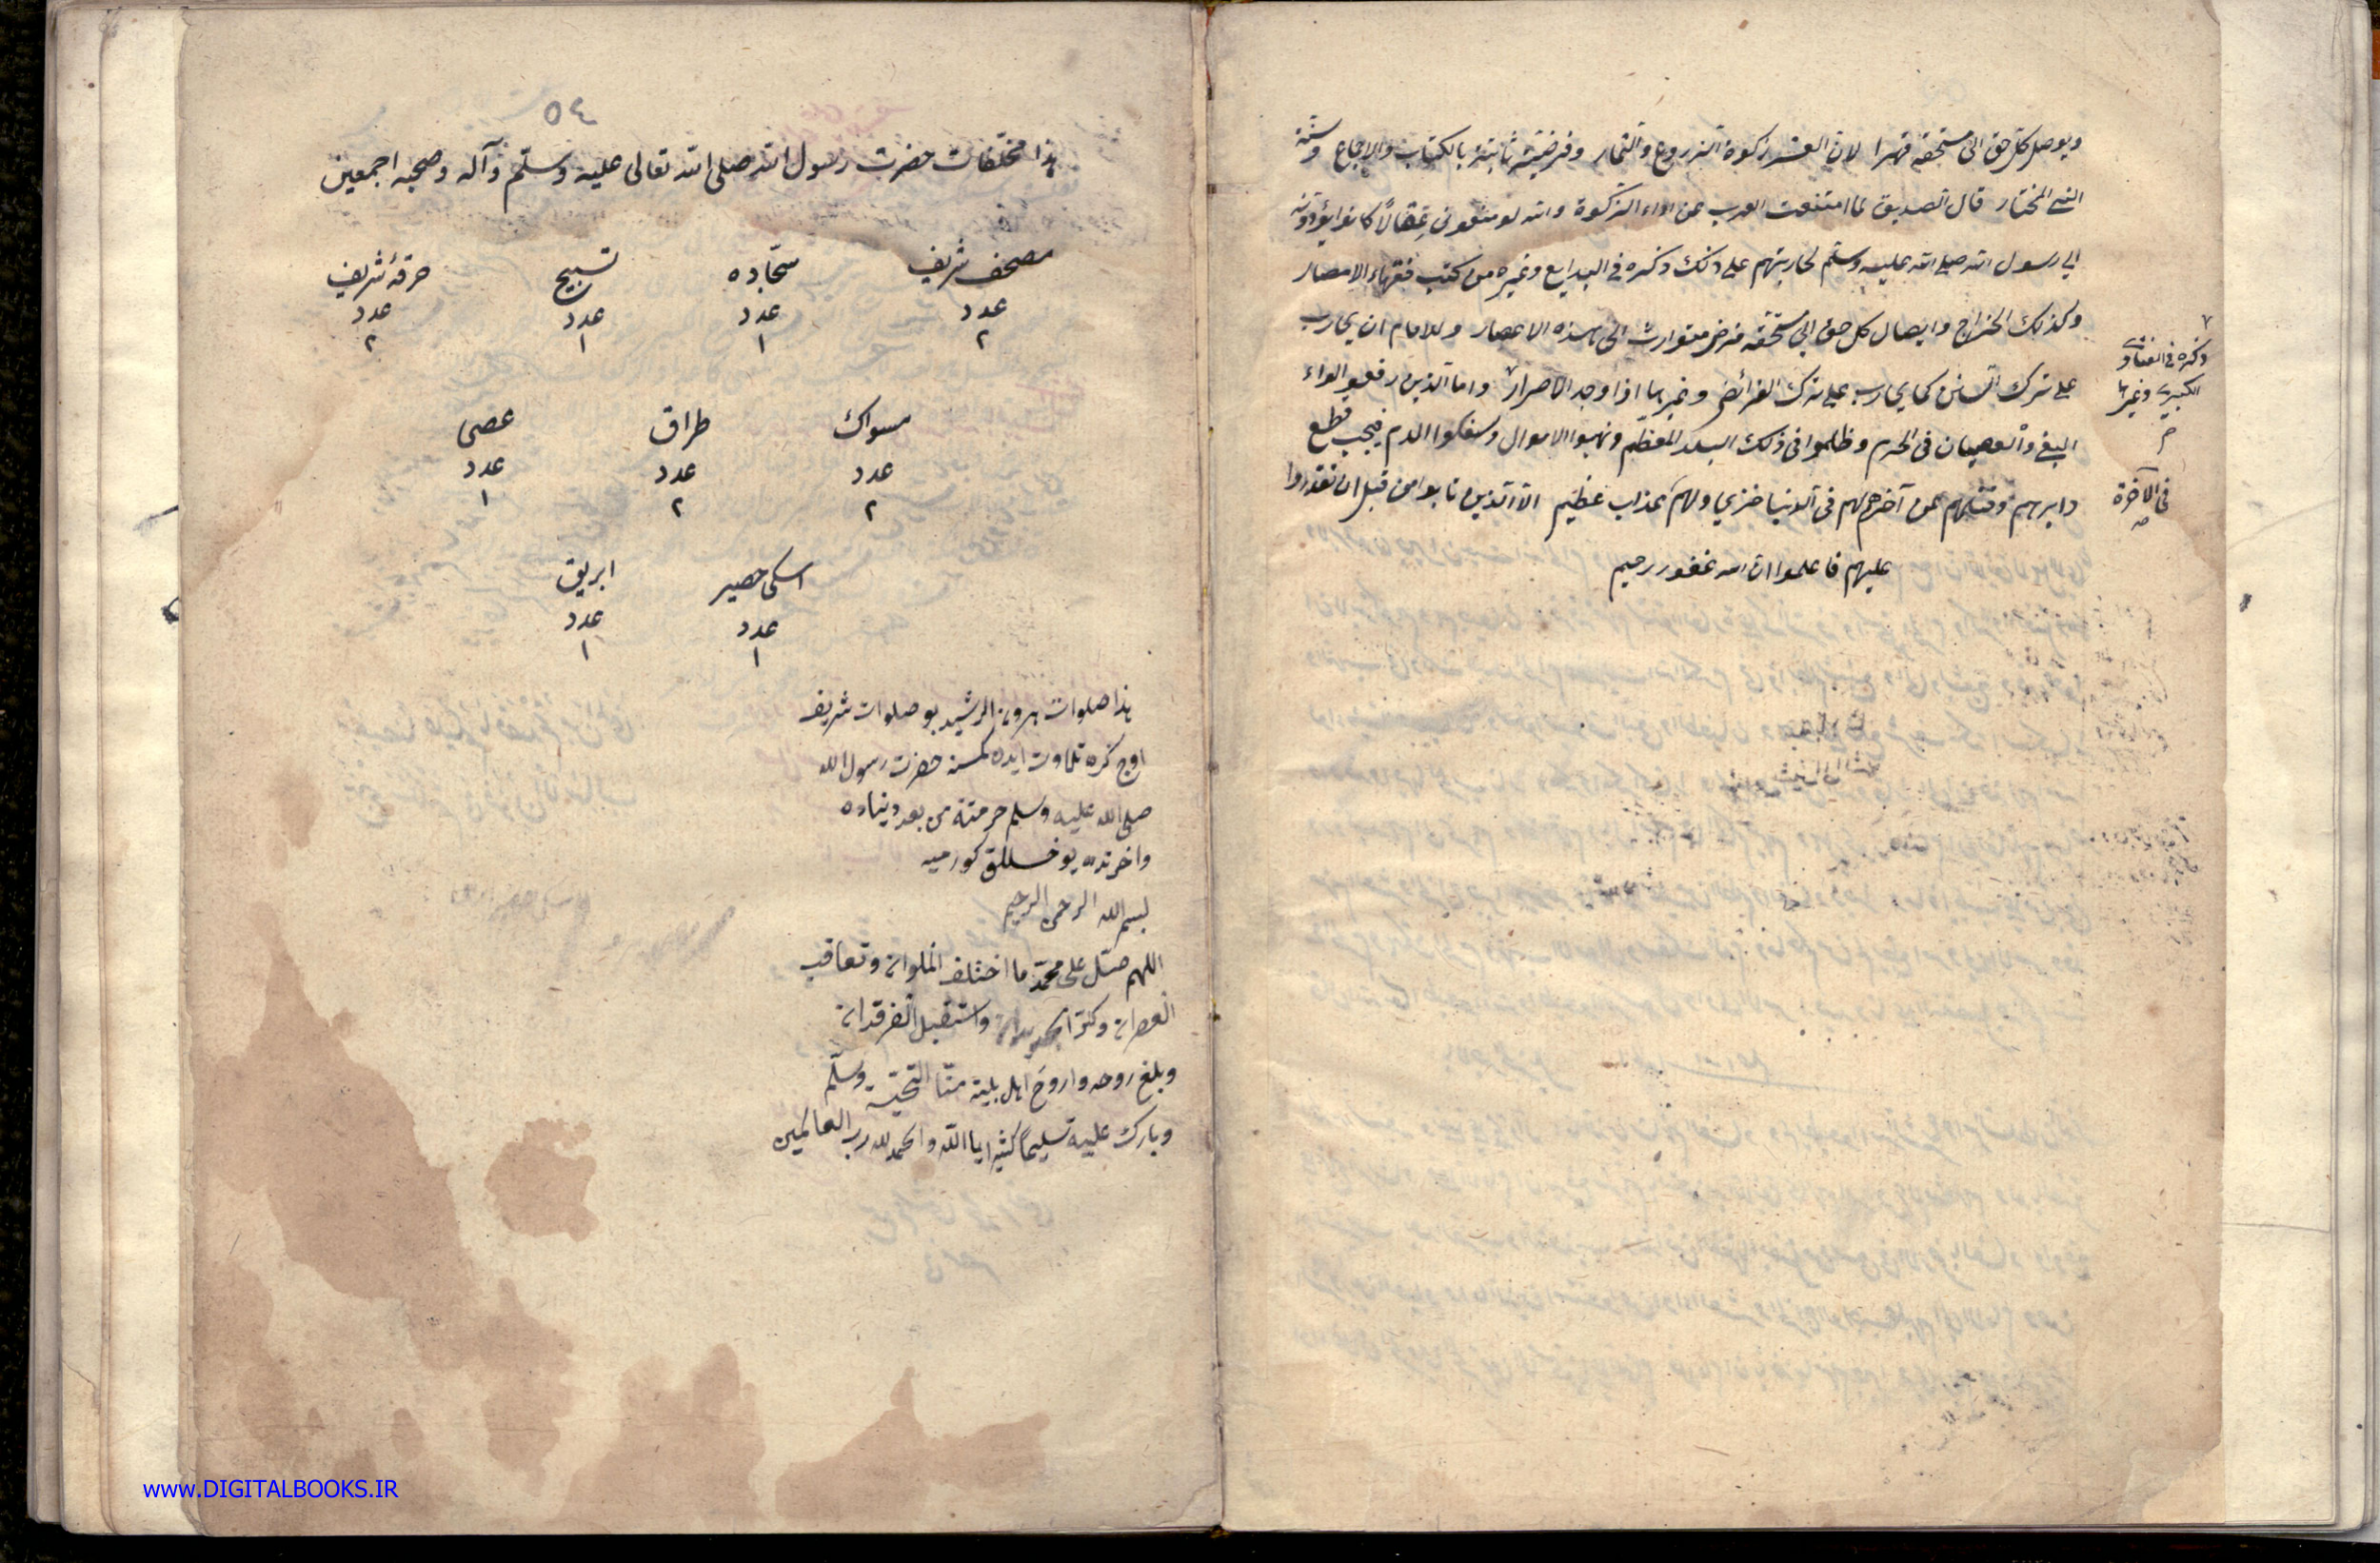 ويوصل كل حق الى مستحقه قهرا لان العشر زكوة الزروع والثمار وفرضيته ثابتة بالكتاب والاجماع وسنة
النبي المختار قال الصديق لما امتنعت العرب عن اداء الزكوة والله لو منعوني عقالاً كانوا يؤدونه
الي رسول الله صلي الله عليه وسلم لحاربتهم علي ذلك ذكره في البدايع وغيره من كتب فقهاء الامصار
وكذلك الخراج وايصال كل حق الي مستحقه فرض متوارث الى هذه الاعصار وللامام ان يحارب
علي ترك السنن كما يحارب علي ترك الفرائض وغيرها اذا وجد الاصرار واما الذين رفعوا لواء
البغي والعصيان في الحرم وظلموا في ذلك البلد المعظم ونهبوا الاموال وسفكوا الدم فيجب قطع
دابرهم وقتلهم عن آخرهم لهم في الدنيا خزي ولهم عذاب عظيم الا الذين تابوا من قبل ان تقدروا
عليهم فاعلموا ان الله غفور رحيم
ذكره في الفتاوى
الكبرى وغيرها
في الآخرة
٥٤
هذا مخلفات حضرت رسول الله صلى الله تعالى عليه وسلم وآله وصحبه اجمعين
مصحف شريف سجاده تسبيح خرقۀ شريف
عدد عدد عدد عدد
٢ ١ ١ ٢
مسواك طراق عصى
عدد عدد عدد
٢ ٢ ١
اسكى حصير ابريق
عدد عدد
١ ١
هذا صلوات هرون الرشيد بو صلوات شريف
اوج كره تلاوت ايدن كمسنه حضرت رسول الله
صلى الله عليه وسلم حرمتنه من بعد دنياده
واخرتده يوخسللق كورميه
بسم الله الرحمن الرحيم
اللهم صل على محمد ما اختلف الملوان وتعاقب
العصران وكر الجديدان واستقبل الفرقدان
وبلغ روحه وارواح اهل بيته منا التحية وسلم
وبارك عليه تسليماً كثيرا يا الله والحمد لله رب العالمين
www.DIGITALBOOKS.IR